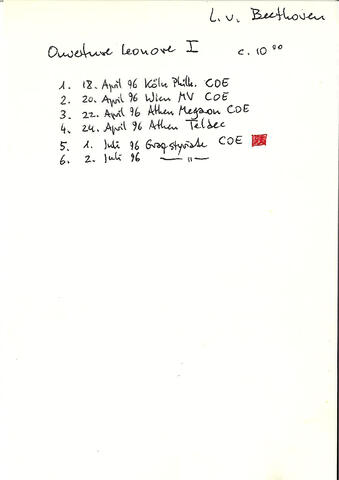 L. v. Beethoven
Ouverture Leonore I c. 10⁰⁰
1. 18. April 96 Köln Philh. COE
2. 20. April 96 Wien MV COE
3. 22. April 96 Athen Megaron COE
4. 24. April 96 Athen Teldec
5. 1. Juli 96 Graz styriarte COE
6. 2. Juli 96 — " —